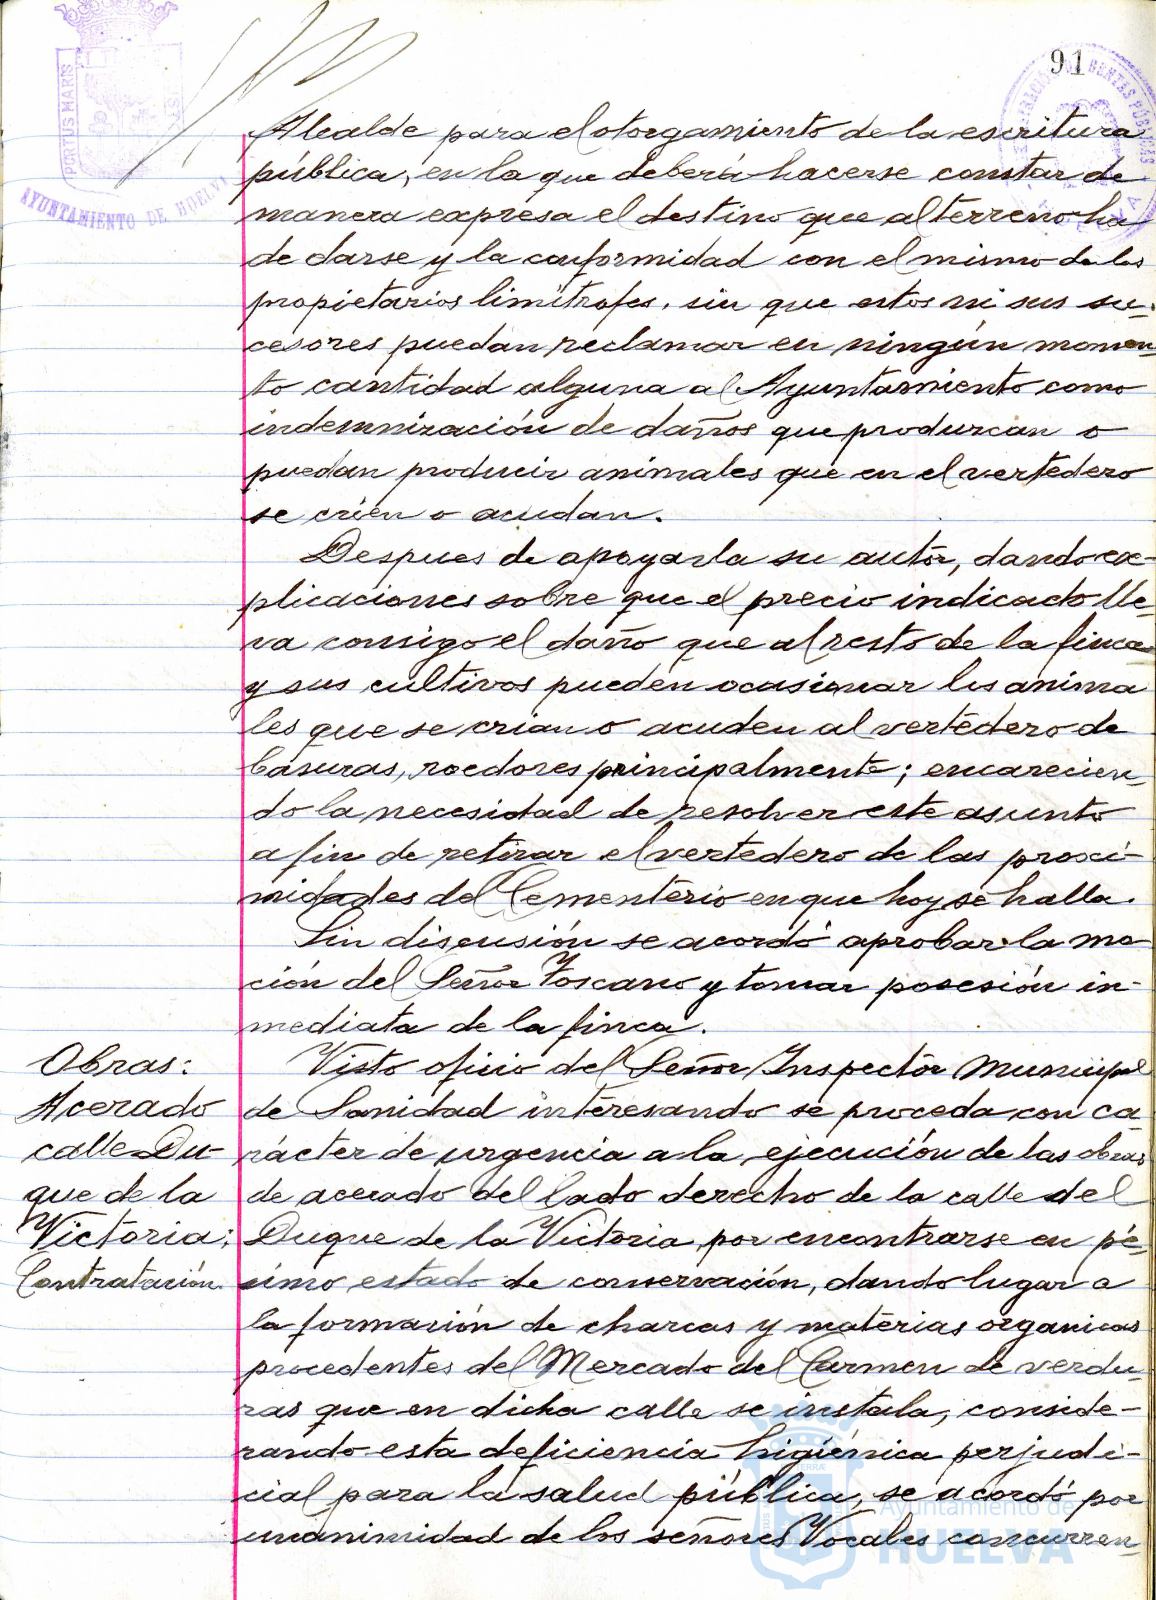 91
PORTUS MARIS
AYUNTAMIENTO DE HUELVA
Alcalde para el otorgamiento de la escritura
pública, en la que deberá hacerse constar de
manera expresa el destino que al terreno ha
de darse y la conformidad con el mismo de los
propietarios limítrofes, sin que estos ni sus su-
cesores puedan reclamar en ningún momen-
to cantidad alguna al Ayuntamiento como
indemnización de daños que produzcan o
puedan producir animales que en el vertedero
se crien o acudan.
Despues de apoyarla su autor, dando ex-
plicaciones sobre que el precio indicado lle-
va consigo el daño que al resto de la finca
y sus cultivos pueden ocasionar los anima
les que se crian o acuden al vertedero de
basuras, roedores principalmente; encarecien-
do la necesidad de resolver este asunto
a fin de retirar el vertedero de las proxi-
midades del Cementerio en que hoy se halla.
Sin discusión se acordó aprobar la mo
ción del Señor Toscano y tomar posesión in-
mediata de la finca.
Obras:
Acerado
calle Du-
que de la
Victoria;
Contratación.
Visto oficio del Señor Inspector Municipal
de Sanidad interesando se proceda con ca-
rácter de urgencia a la ejecución de las obras
de acerado del lado derecho de la calle del
Duque de la Victoria, por encontrarse en pé-
simo estado de conservación, dando lugar a
la formación de charcas y materias organicas
procedentes del Mercado del Carmen de verdu-
ras que en dicha calle se instala, conside-
rando esta deficiencia higiénica perjudi-
cial para la salud pública, se acordó por
unanimidad de los señores Vocales concurren-
Ayuntamiento de
HUELVA